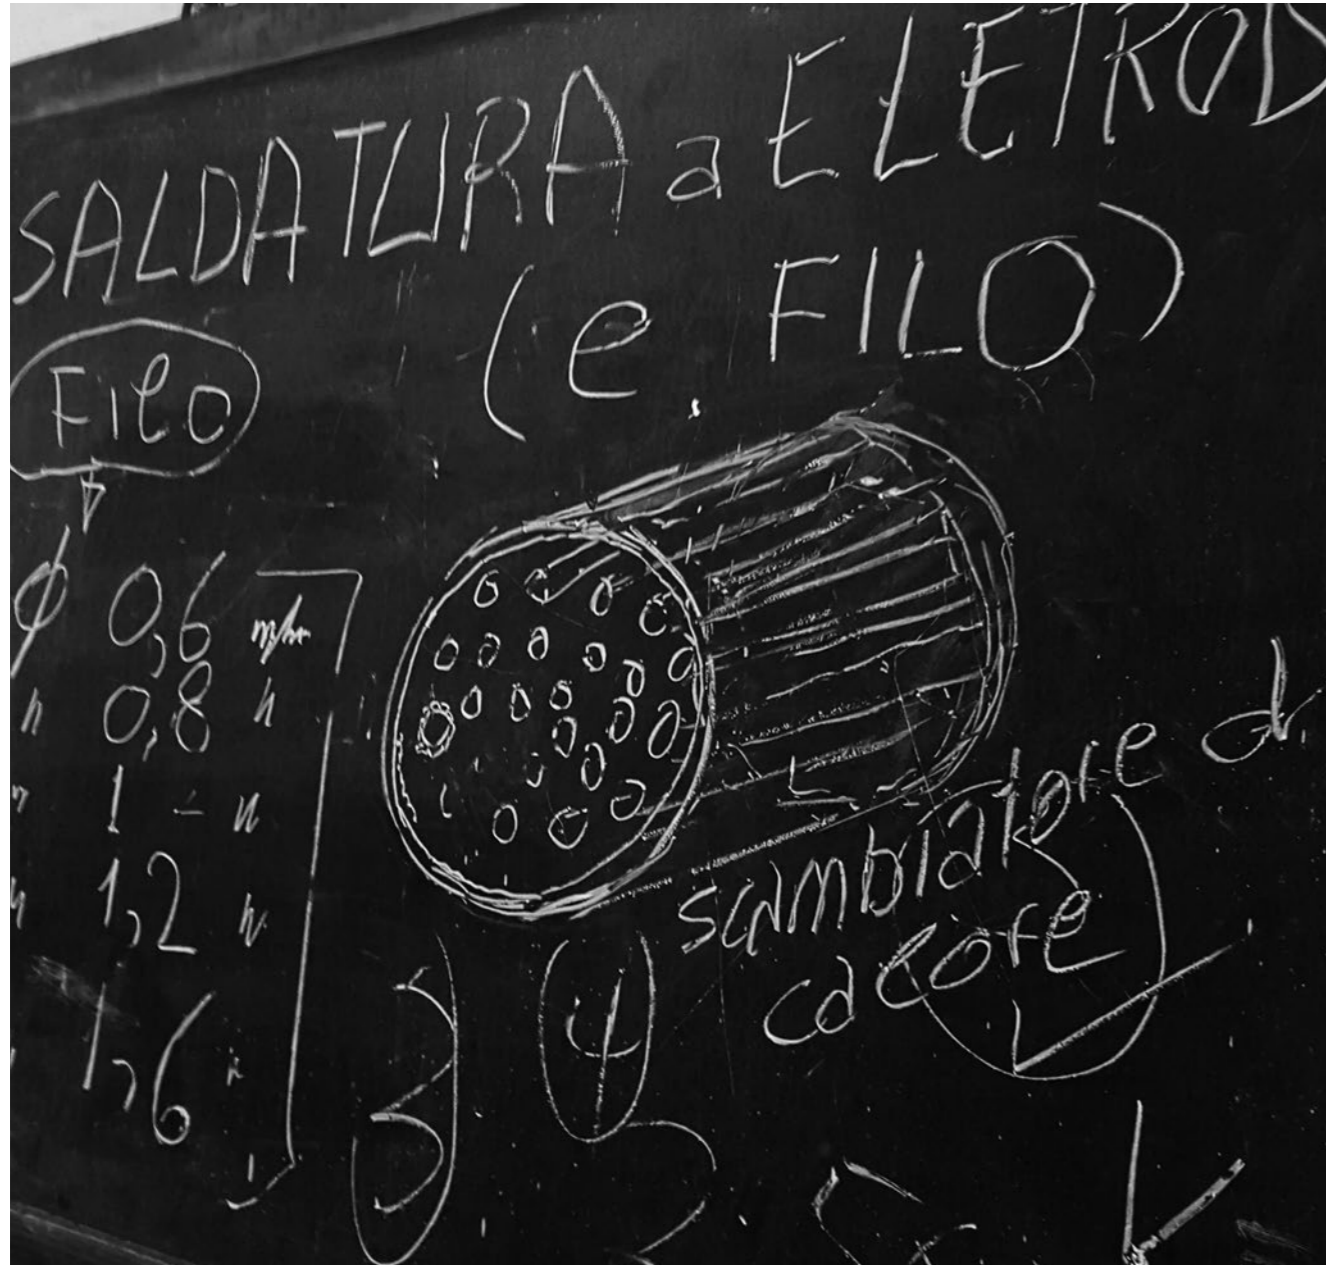 SALDATURA a ELETROD
(e. FILO)
Filo
ϕ 0,6 m/m
" 0,8 "
" 1 - "
" 1,2 "
1,6 "
scambiatore di
calore
3
4